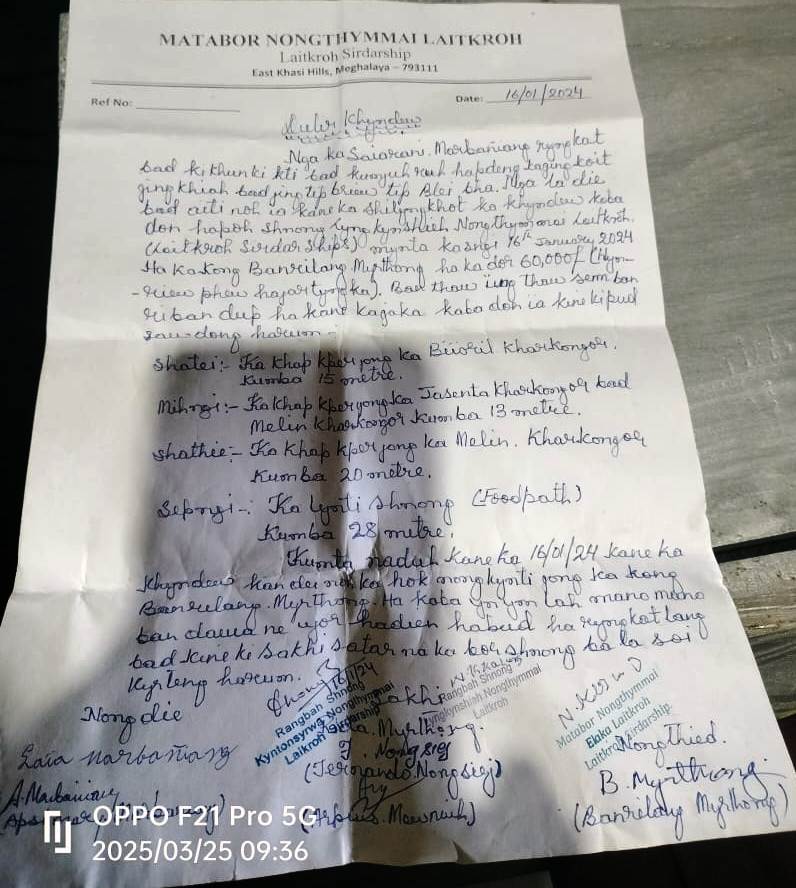 MATABOR NONGTHYMMAI LAITKROH
Laitkroh Sirdarship
East Khasi Hills, Meghalaya - 793111
Ref No:
Date: 16/01/2024
Khyndew
Nga ka Saiarani. Marbaniang ryngkat
bad ki khun ki kti bad ruh hapdeng ka jing koit
jing khiah bad jing tip briew tip Blei bha. Nga la die
bad aiti noh ia kane ka shilynkhot ka khyndew kaba
don hapoh shnong Lyngkynshieh Nongthymmai Laitkroh.
(Laitkroh Sirdarships) mynta ka sngi 16th January 2024
Ha ka Kong Banrilang Myrthong ha ka dor 60,000/- (Hyn-
-riew phew hajar tyngka). Ban thaw ïing thaw sem ban
ri ban dup ha kane ka jaka kaba don ia kine ki pud
sau-dong harum -
Shatei:- Ka khap kper jong ka Biiril Kharkongor.
Kumba 15 metre.
Mihngi:- Ka khap kper jong ka Jasenta Kharkongor bad
Melin Kharkongor Kumba 13 metre.
Shathie- Ka khap kper jong ka Melin. Kharkongor
Kumba 20 metre.
Sepngi-: Ka lynti shnong (Foodpath)
Kumba 28 metre.
Kumta naduh kane ka 16/01/24 kane ka
khyndew kan dei noh ka hok nongkynti jong ka Kong
Banrilang. Myrthong. Ha kata ym lah mano mano
ban dawa ne ujor hadien habud ha ryngkat lang
bad kine ki sakhi na ka bor shnong ba la soi
kyrteng harum.
Nongdie
16/1/24
Rangbah Shnong
Kyntonsyrwa Nongthymmai
Laikroh Sirdarship
Sakhi
Rangbah Shnong
Lyngkynshiah Nongthymmai
Laitkroh
Matabor Nongthymmai
Elaka Laitkroh
Laitkroh Sirdarship.
Nongthied.
Saia Marbaniang
Myrthong.
J. Nongsiej
(Fernando Nongsiej)
B. Myrthong.
(Banrilang Myrthong)
A. Marbaniang
OPPO F21 Pro 5G
2025/03/25 09:36